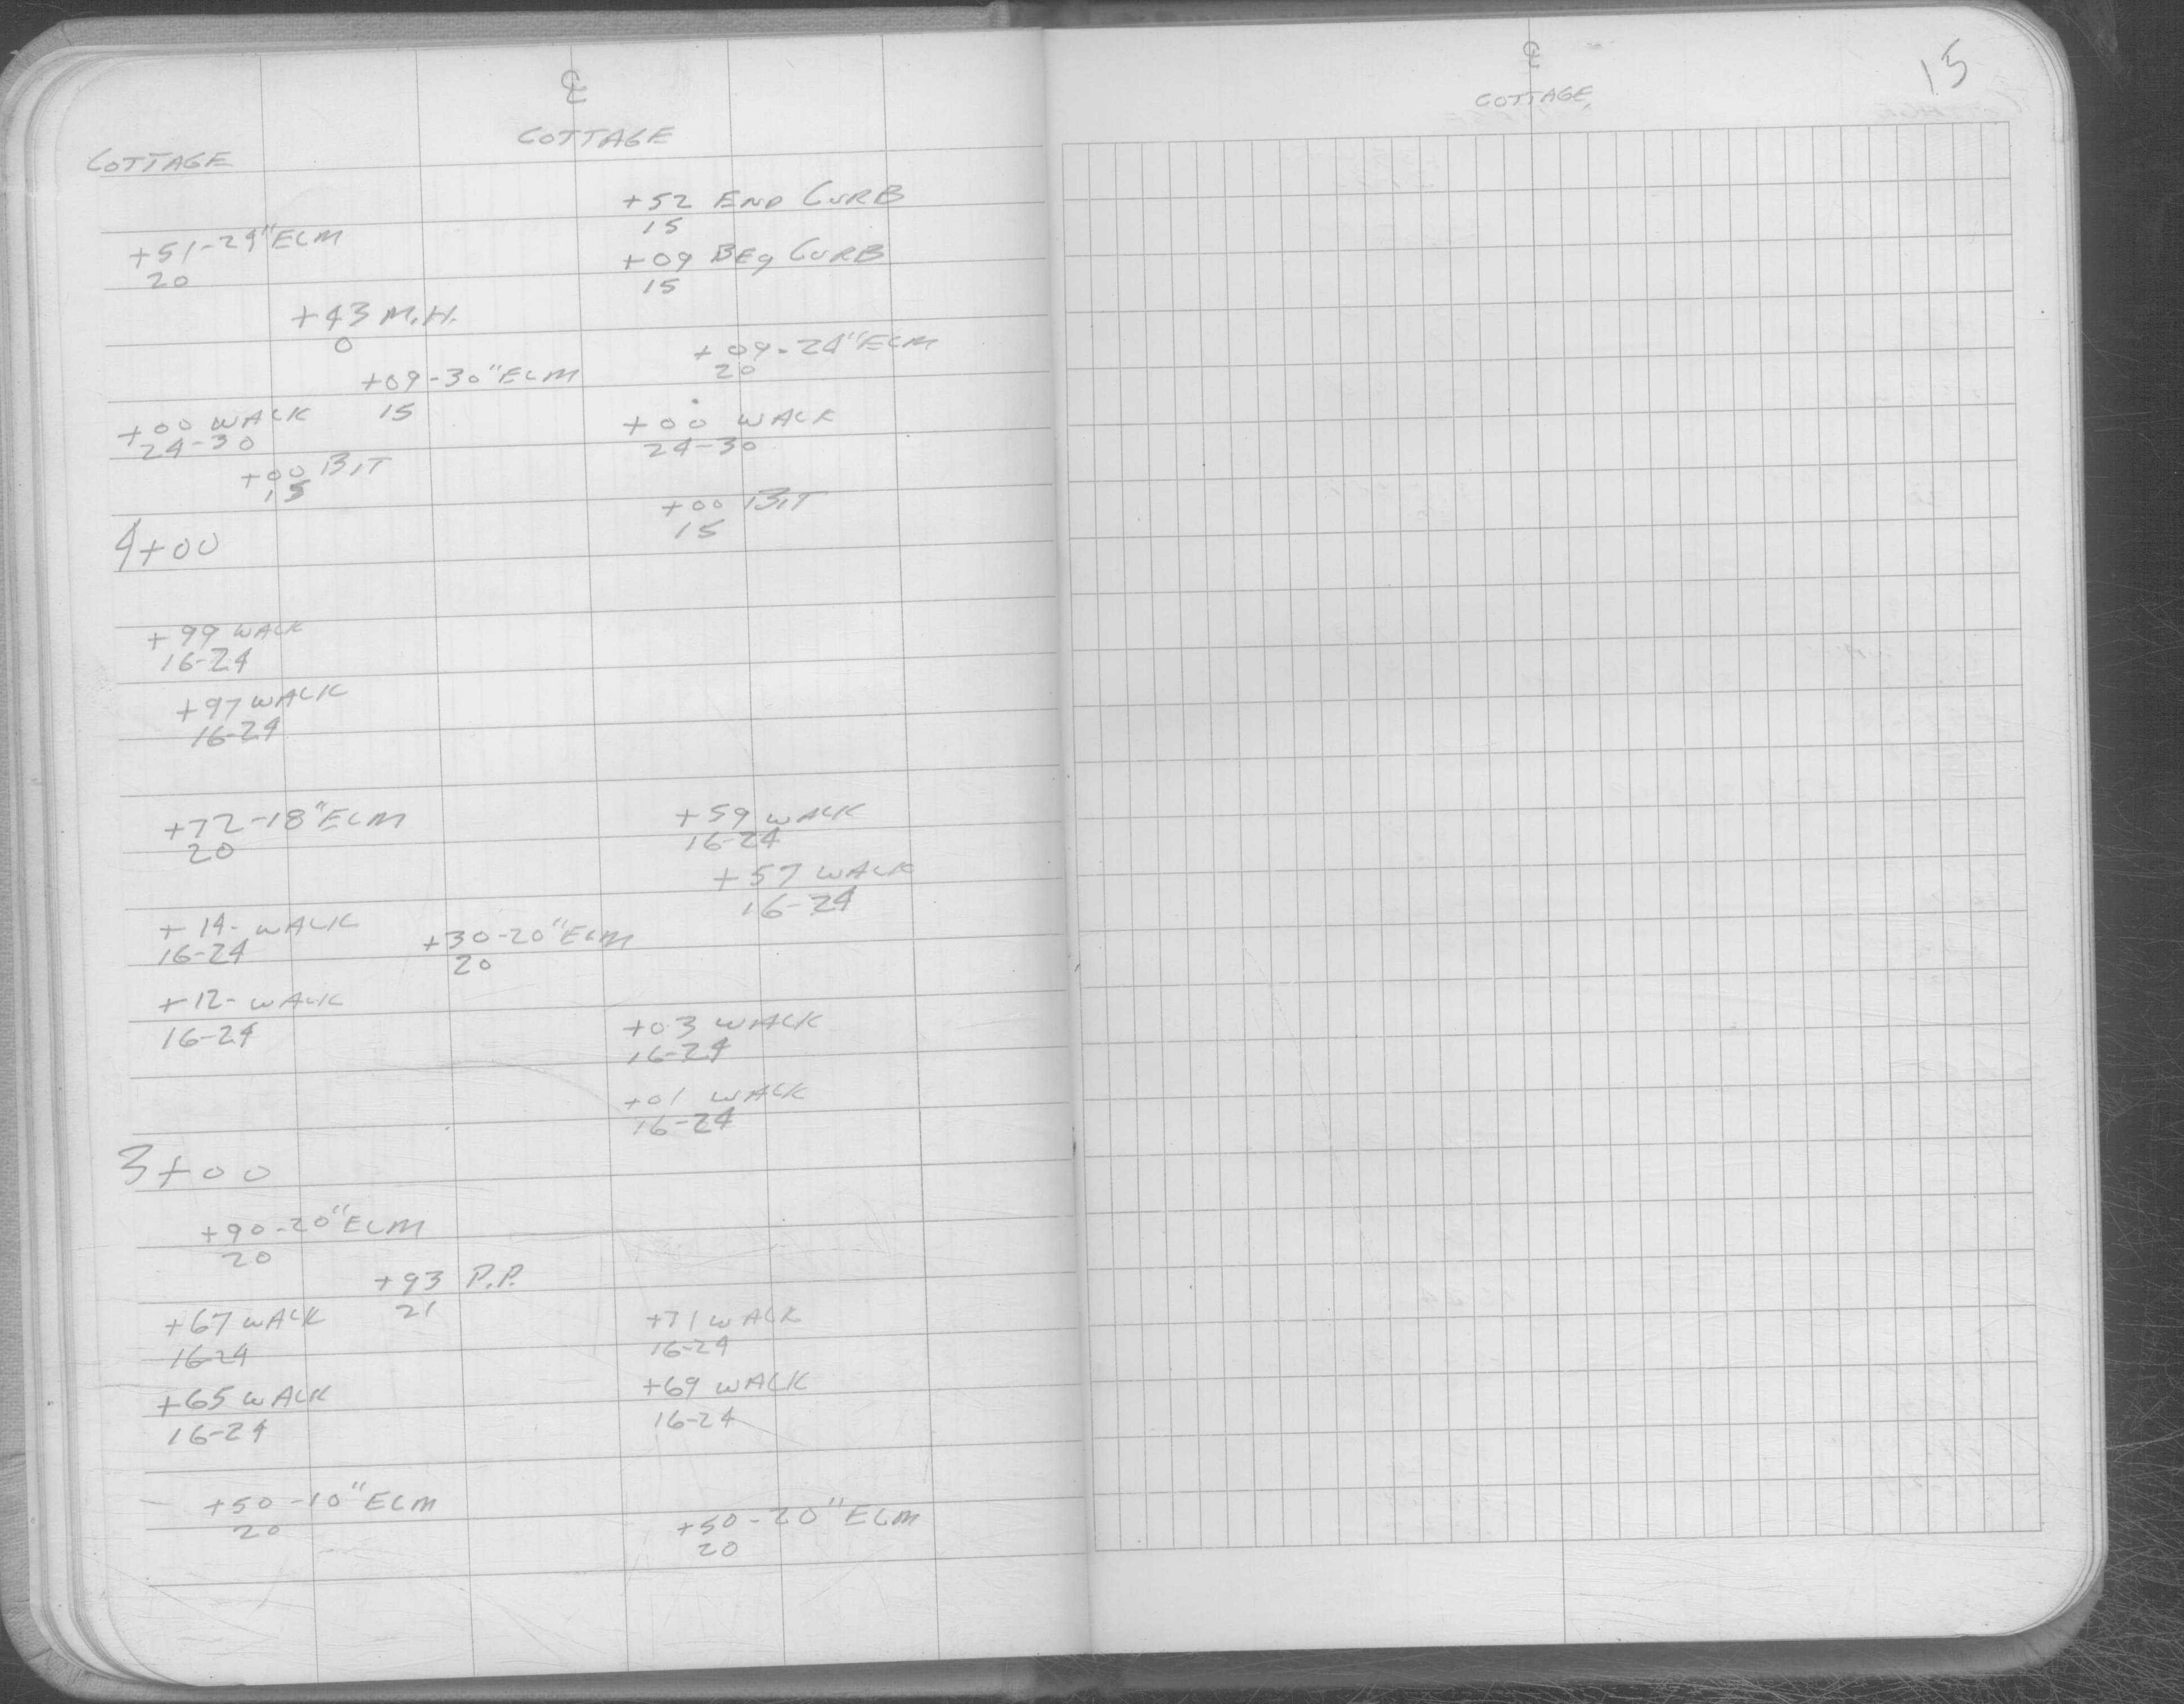 ℄
COTTAGE
COTTAGE
+52 END CURB
15
+51-24" ELM
20
+09 BEG CURB
15
+43 M.H.
0
+09-24" ELM
20
+09-30" ELM
15
+00 WALK
24-30
+00 WALK
24-30
+00 BIT
15
+00 BIT
15
4+00
+99 WALK
16-24
+97 WALK
16-24
+72-18" ELM
20
+59 WALK
16-24
+57 WALK
16-24
+14- WALK
16-24
+30-20" ELM
20
+12- WALK
16-24
+03 WALK
16-24
+01 WALK
16-24
3+00
+90-20" ELM
20
+93 P.P.
21
+67 WALK
16-24
+71 WALK
16-24
+65 WALK
16-24
+69 WALK
16-24
+50-10" ELM
20
+50-20" ELM
20
℄
COTTAGE
15